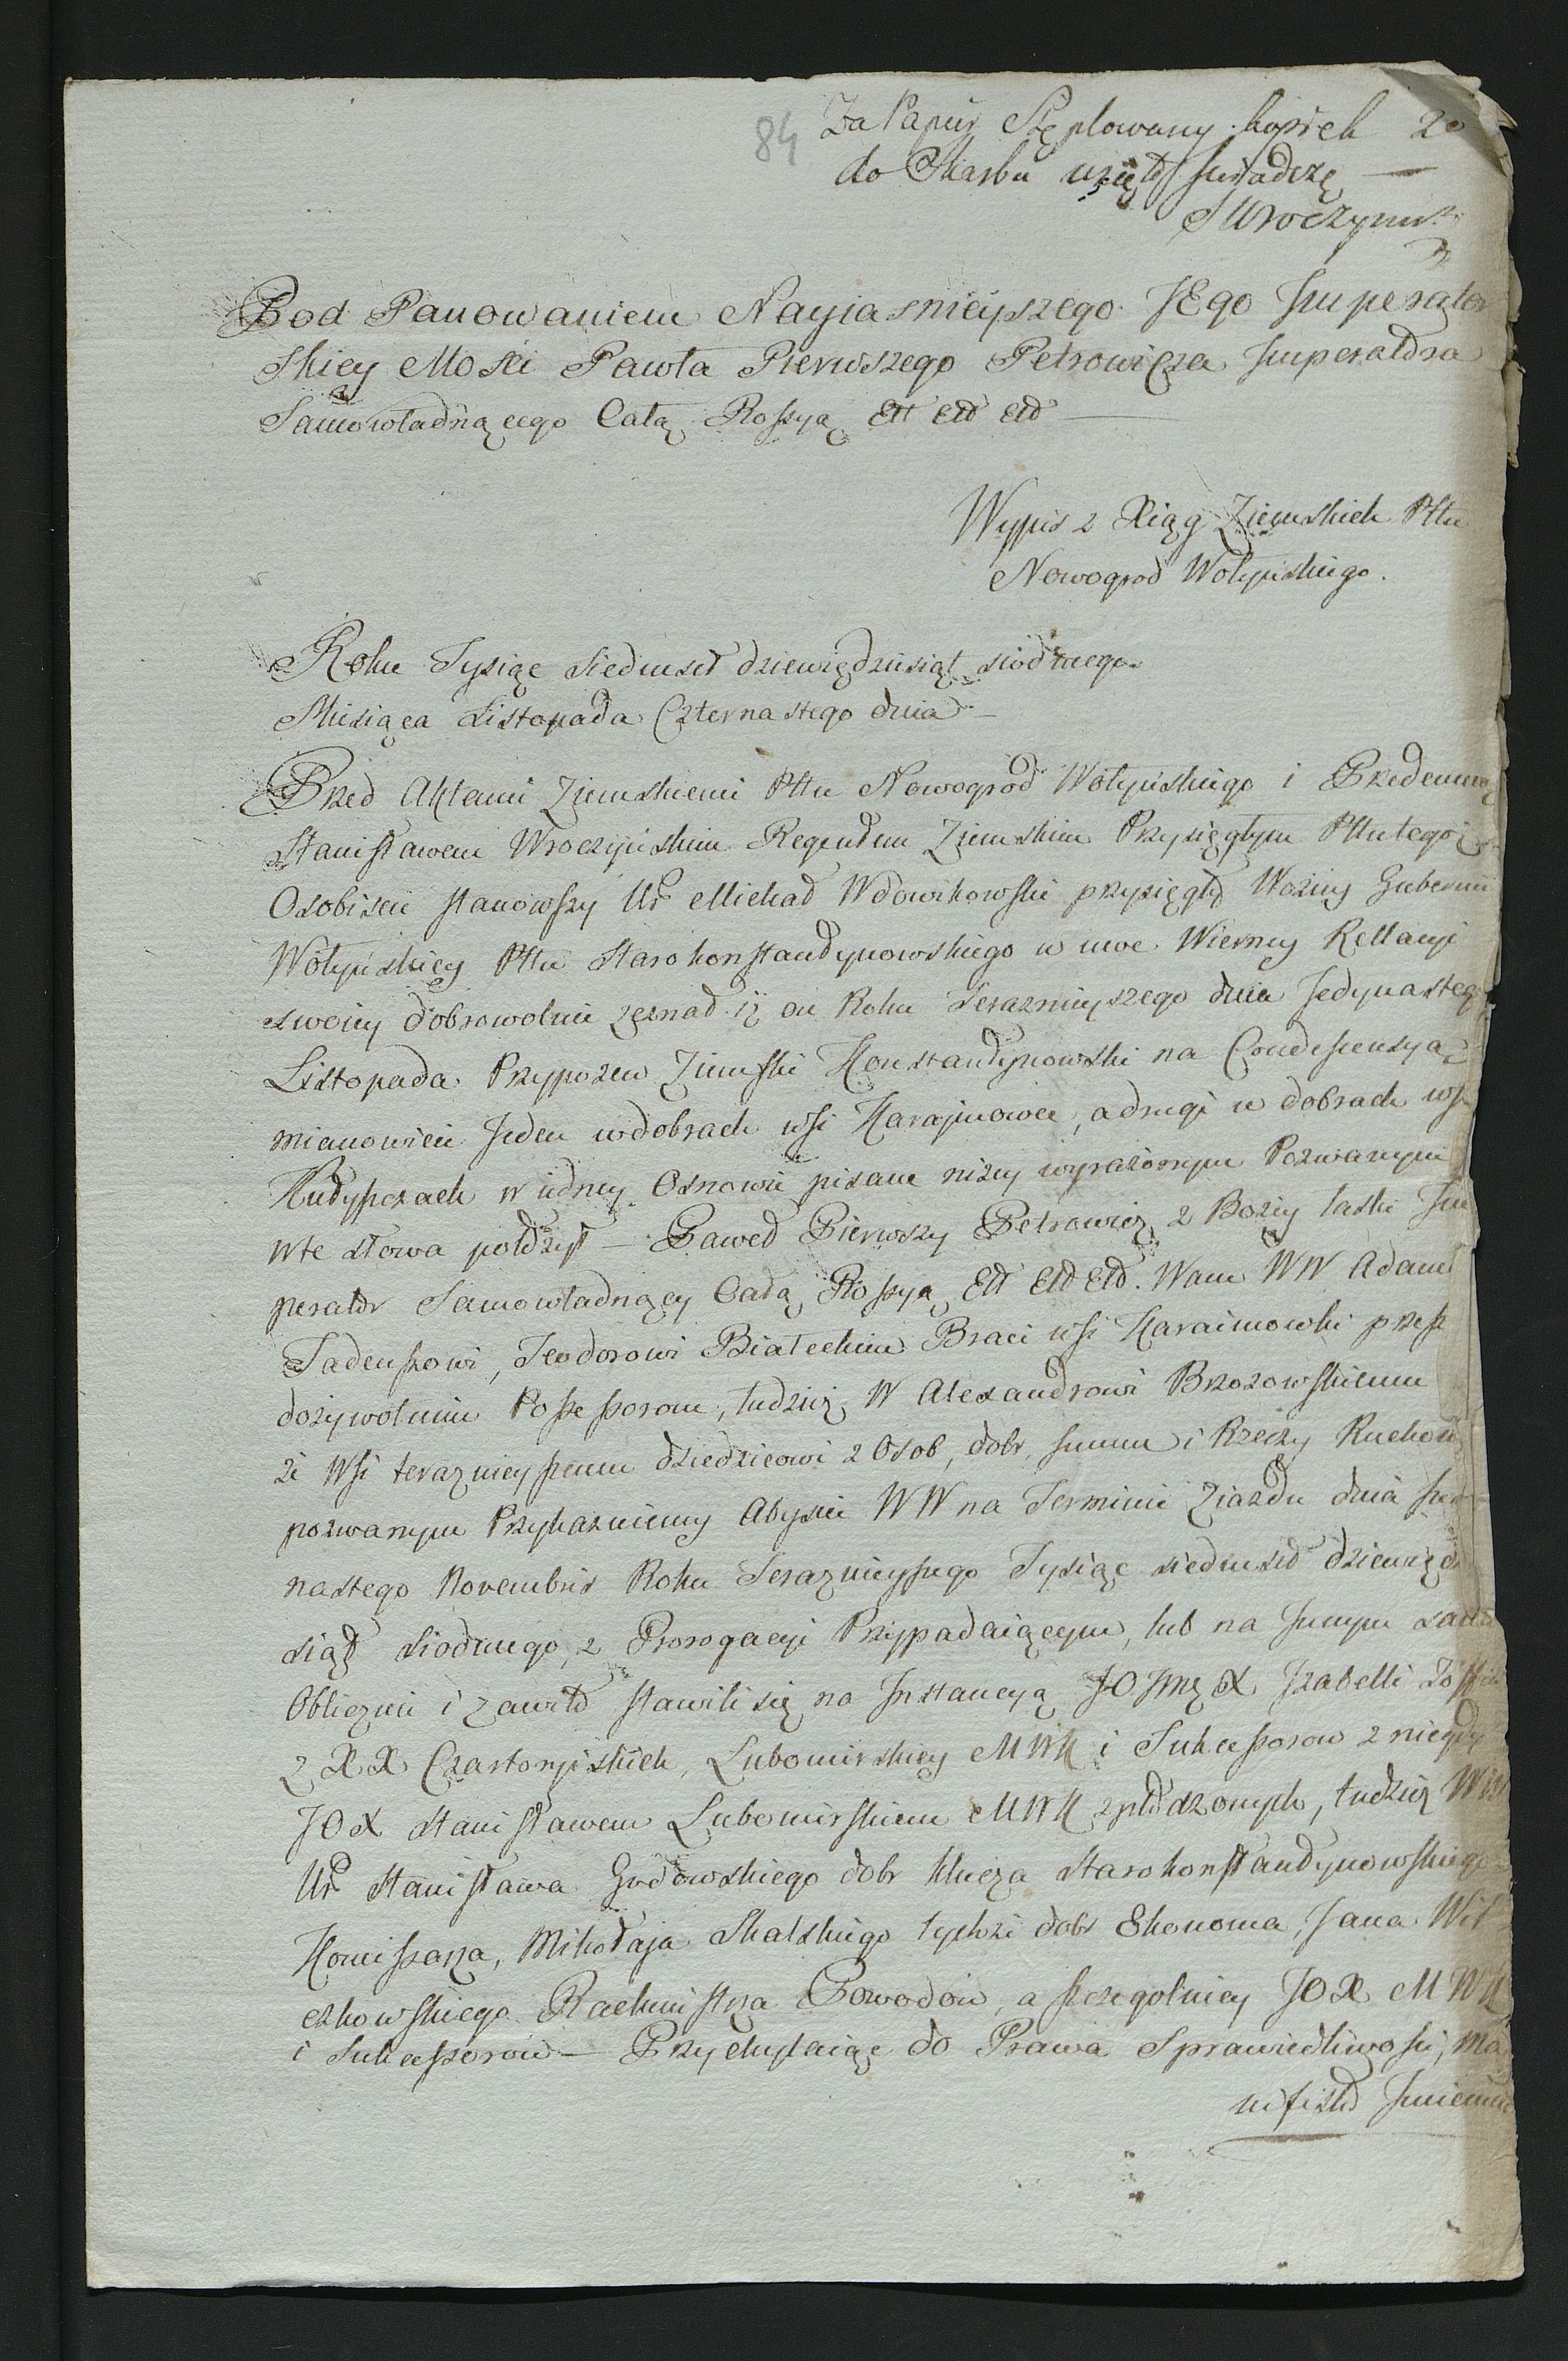 84
Za Papier Stęplowany kopiek 20
do Skarbu wzięto swiadczę —
SWroczyns
Pod Panowaniem Nayiasnieyszego JEgo Imperator
skiey Mosci Pawła Pierwszego Petrowicza Imperatora
Samowładnącego Całą Rossyą Ett Ett Ett —
Wypis z Xiąg Ziemskich Pttu
Nowogrod Wołyńskiego.
Roku Tysiąc Siedmset dziewiędziesiąt siodmego
Miesiąca Listopada Czternastego dnia —
Przed Aktami Ziemskiemi Pttu Nowogrod Wołyńskiego i Przedemną
Stanisławem Wroczyńskim Regentem Ziemskim Przysięgłym Pttu tegoż
Osobiscie stanowszy Ur Michał Wdowikowski przysięgły Wozny Gubernii
Wołyńskiey Pttu Starokonstantynowskiego w moc Wierney Rellacyi
swoiey dobrowolnie zeznał iż on Roku Teraznieyszego dnia Jedynastego
Listopada Przypozew Ziemski Konstantynowski na Condescensyą
mianowicie Jeden w dobrach wsi Karaimowce, a drugi w dobrach wsi
Hudyszczach w iedney Osnowie pisane niżey wyrażonym Pozwanym
w te słowa położył — Paweł Pierwszy Petrowicz z Bożey łaski Im
perator Samowładnący Całą Rossyą Ett Ett Ett. Wam WW Adam
Tadeuszowi, Teodorowi Białeckim Braci wsi Karaimowki przesz
dożywotnim Possessorom, tudzież W Alexandrowi Brzozowskiemu
że Wsi teraznieyszemu dziedzicowi z Osob, dobr, summ i Rzeczy Ruchom
pozwanym Przykazuiemy Abyscie WW na Terminie Ziazdu dnia
nastego Novembris Roku Terazniejszego Tysiąc siedmset dziewiędzie
siąt siodmego, z Prorogacyi Przypadaiącym, lub na Innym
Obliczniie i zawito stawili się na Instancyą JO Jmć X Izabelli
z XX Czartoryiskich, Lubomirskiey MWK i Sukcessorow z niegdy
JOX Stanisławem Lubomirskim MWK zpłodzonych, tudzież
Ur Stanisława Godowskiego dobr klucza Starokonstantynowskiego
Komissarza, Mikołaja Skalskiego tychże dobr Ekonoma, Jana Wit
czkowskiego Rachmistrza Powodow, a szczegolniey JOX MWK
i Sukcessorow — Przychylaiąc do Prawa Sprawiedliwosci, Ma
nifest Imieniem